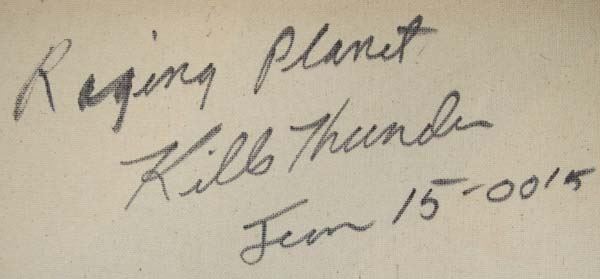 Raging Planet
Kills Thunder
Jan 15-00'5